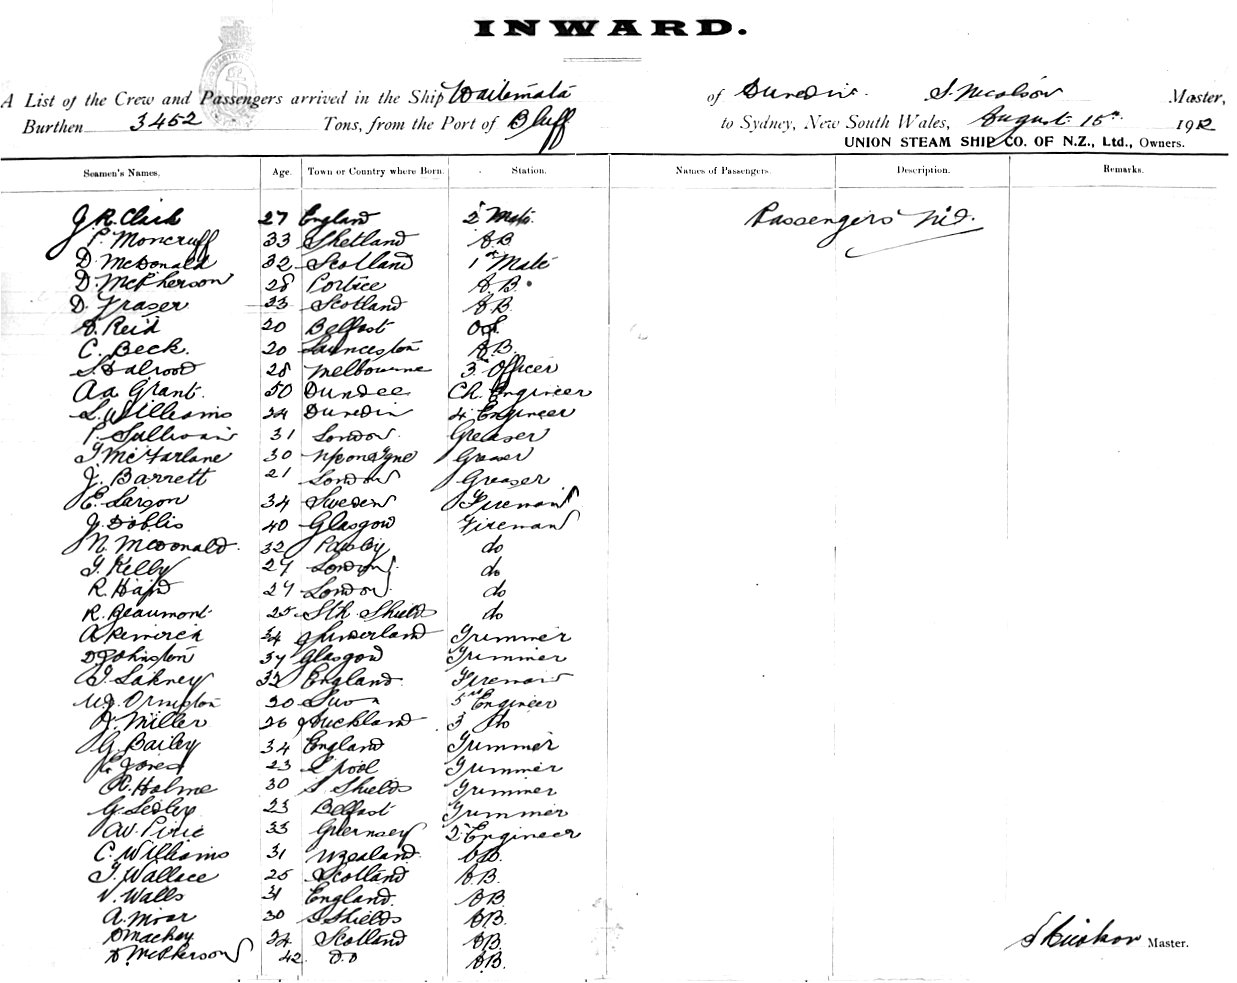 INWARD.
A List of the Crew and Passengers arrived in the Ship Waitemata of Dunedin S. Nicolson Master,
Burthen 3452 Tons, from the Port of Bluff to Sydney, New South Wales, August 15th 1912
UNION STEAM SHIP CO. OF N.Z., Ltd., Owners.
Seamen's Names. Age. Town or Country where Born. Station. Names of Passengers. Description. Remarks.
J. R. Clark 27 England 2 Mate Passengers Nil.
P. Moncruff 33 Shetland AB
D. McDonald 32 Scotland 1st Mate
D. McPherson 28 A.B.
D. Fraser 33 Scotland AB
A. Reid 20 Belfast OS.
C. Beck. 20 Launceston AB.
28 Melbourne 3 Officer
Aa Grant. 50 Dundee Ch. Engineer
L. Williams 24 Dunedin 4 Engineer
P. Sullivan 31 London. Greaser
T. McFarlane 30 Greaser
J. Barrett 21 London Greaser
E. Larson 34 Sweden Fireman
J. Doblis 40 Glasgow Fireman
M. McDonald. 32 Paisley do
T. Kelly 27 London do
R. 27 London do
R. Beaumont 25 Sth Shields do
A 34 Sunderland Trimmer
D Johnston 37 Glasgow Trimmer
T. Sakney 32 England. Fireman
Ormiston 20 5th Engineer
J. Miller 26 Auckland 3 do
G. Bailey 34 England Trimmer
E. Jones 23 L'pool Trimmer
A. Holme 30 S Shields Trimmer
G. Sedley 23 Belfast Trimmer
AW. Pirie 33 Guernsey 2 Engineer
C. Williams 31 N Zealand. AB.
T. Wallace 25 Scotland A.B.
V. Walls 31 England. AB
A. Moar 30 S Shields AB.
D Mackay 24 Scotland AB.
D McPherson 42 Do A.B.
Master.